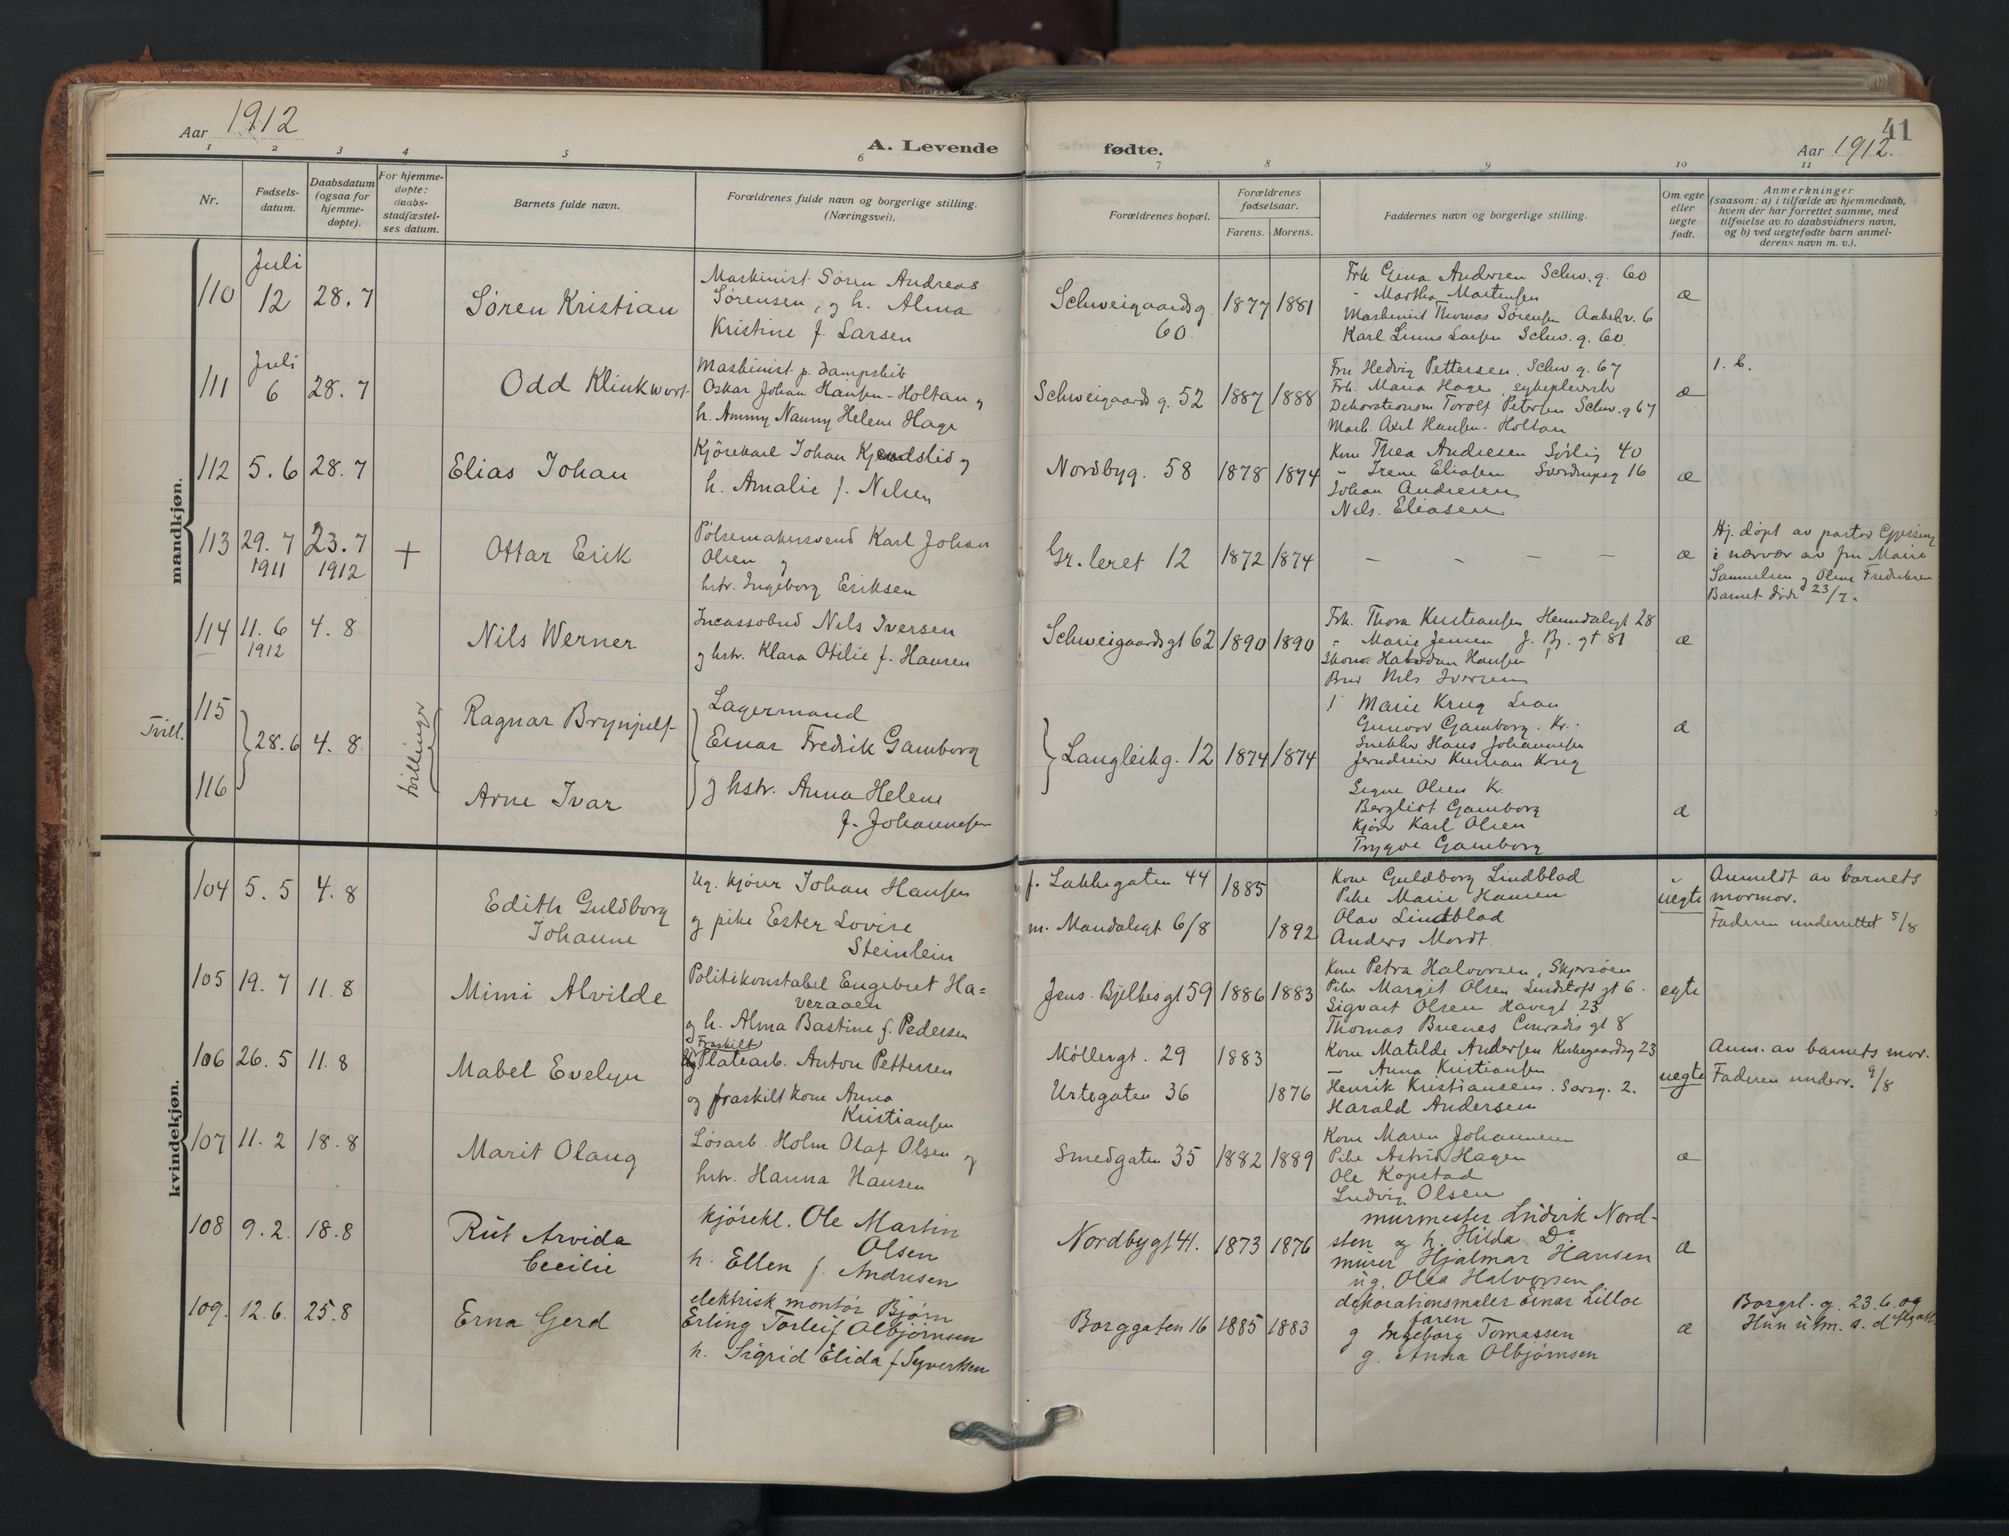 Aar 1912
A. Levende fødte.
41
Aar 1912.
1 2 3 4 5 6 7 8 9 10 11
Nr.
Fødsels-
datum.
Daabsdatum
(ogsaa for
hjemme-
døpte).
For hjemme-
døpte:
daabs-
stadfæstel-
ses datum.
Barnets fulde navn.
Forældrenes fulde navn og borgerlige stilling.
(Næringsvei).
Forældrenes bopæl.
Forældrenes
fødselsaar.
Farens. Morens.
Faddernes navn og borgerlige stilling.
Om egte
eller
uegte
født.
Anmerkninger
(saasom: a) i tilfælde av hjemmedaab,
hvem der har forrettet samme, med
tilføielse av to daabsvidners navn,
og b) ved uegtefødte barn anmel-
derens navn m. v.).
mandkjøn.
110 Juli 12 28.7 Søren Kristian
Maskinist Søren Andreas
Sørensen, og h. Alma
Kristine f. Larsen
Schweigaardsg. 60. 1877 1881
Frk Gina Andersen Schw. g. 60
" Martha Martensen
Maskinist Thomas Sørensen Aakebv. 6
Karl Linus Larsen Schw. g. 60.
æ
111 Juli 6 28.7 Odd Klinkwort
Maskinist p. dampskib
Oskar Johan Hansen-Holtan og
h. Ammy Nanny Helene Hage
Schweigaards g. 52 1887 1888
Fru Hedvig Pettersen. Schw. g. 67
Frk. Maria Hage sykepleiersk
Dekorationsm Torolf Petersen Schw. g 67
Mask. Axel Hansen-Holtan
æ
112 5.6 28.7 Elias Johan
Kjørekarl Johan Kjendslid og
h. Amalie f. Nilsen
Nordbyg. 58 1878 1874
Kone Thea Andresen Sørlig 40
" Irene Eliasen Sverdrupsg 16
Johan Andresen
Nils. Eliasen
æ
113 29.7 1911 23.7 1912 + Ottar Erik
Pølsemakersvend Karl Johan
Olsen og
hstr. Ingeborg Eriksen
Gr. leret 12 1872 1874
– – – –
æ
Hj. døpt av pastor
i nærvær av fru Marie
Samuelsen og Oline Fredriksen
Barnet døde 23/7.
114 11.6 1912 4.8 Nils Werner
Incassobud Nils Iversen
og hstr. Klara Otilie f. Hansen
Schweigaardsgt 62 1890 1890
Frk. Thora Kristiansen Hemdalsgt 28
" Marie Jensen J. B. gt 81
Skom. Halvdan Hansen
Bud Nils Iversen
æ
Tvill. 115 116 28.6 4.8 tvillinger
Ragnar Brynjulf
Arne Ivar
Lagermand
Einar Fredrik Gamborg
og hstr. Anna Helene
f. Johannesen
Langleikg. 12 1874 1874
Marie Krug Lian
Gunvor Gamborg. Kr.
Snekker Hans Johannesen
Jerndreier Kristian Krug
æ
Signe Olsen Kr.
Bergliot Gamborg
Kjører Karl Olsen
Trygve Gamborg
æ
kvindekjøn.
104 5.5 4.8 Edith Guldborg
Johanne
Ug. kjører Johan Hansen
og pike Ester Lovise
Steinlein
f. Lakkegaten 44 1885
m. Mandalsgt 6/8 1892
Kone Guldborg Lindblad
Pike Marie Hansen
Olav Lindblad
Anders Mordt.
uegte
Anmeldt av barnets
mormor.
Faderen underrettet 5/8
105 19.7 11.8 Mimi Alvilde
Politikonstabel Engebret Ha=
veraaen
og h. Alma Bastine f. Pedersen
Jens Bjelkesgt 59 1886 1883
Kone Petra Halvorsen,
Pike Margit Olsen Lindstøfs gt 6.
Sigvart Olsen Havegt. 23.
Thomas Buenes Conradis gt 8
egte
106 26.5 11.8 Mabel Evelyn
Fraskilt
Platearb. Anton Pettersen
og fraskilt kone Anna
Kristiansen
Møllergt. 29 1883
Urtegaten 36 1876
Kone Matilde Andersen Kirkegaardsg 23
– Anna Kristiansen
Henrik Kristiansen. Sarsg. 2.
Harald Andersen
uegte
Anm. av barnets mor.
Faderen underr. 9/8
107 11.2 18.8 Marit Olaug
Løsarb. Holm Olaf Olsen og
hstr. Hanna Hansen
Smedgaten 35 1882 1889
Kone Maren Johannesen
Pike Astrid Hagen
Ole Kopstad
Ludvig Olsen
æ
108 9.2. 18.8 Rut Arvida
Cecilie
kjørekl. Ole Martin
Olsen
h. Ellen f. Andresen
Nordbygt 41. 1873 1876
murmester Ludvik Nord-
sten og h. Hilda Do
murer Hjalmar Hansen
ug. Olea Halvorsen
æ
109. 12.6. 25.8 Erna Gerd
elektrisk montør Bjørn
Erling Torleif Olbjørnsen
h. Sigrid Elida f Syvertsen
Borggaten 16 1885 1883
dekorationsmaler Einar Lilloe
faren
g Ingeborg Tomassen
g. Anna Olbjørnsen
æ
Borgrl. g. 23.6.09